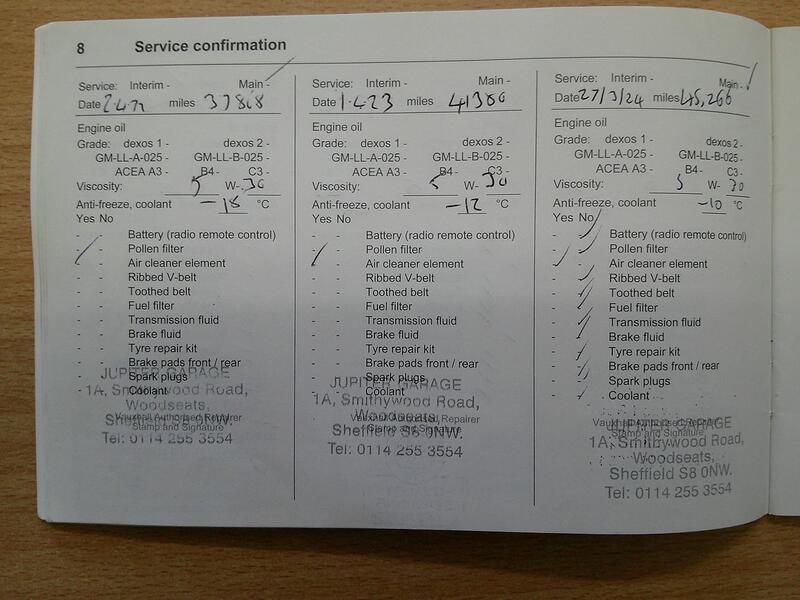 8 Service confirmation
Service: Interim - Main -
Date 2.4.22 miles 37818
Engine oil
Grade: dexos 1 - dexos 2 -
GM-LL-A-025 - GM-LL-B-025 -
ACEA A3 - B4 - C3 -
Viscosity: 5 W- 30
Anti-freeze, coolant -18 °C
Yes No
- - Battery (radio remote control)
- - Pollen filter
- - Air cleaner element
- - Ribbed V-belt
- - Toothed belt
- - Fuel filter
- - Transmission fluid
- - Brake fluid
- - Tyre repair kit
- - Brake pads front / rear
- - Spark plugs
- - Coolant
Vauxhall Authorised Repairer
Stamp and Signature
JUPITER GARAGE
1A, Smithywood Road,
Woodseats,
Sheffield S8 0NW.
Tel: 0114 255 3554
Service: Interim - Main -
Date 1.4.23 miles 41300
Engine oil
Grade: dexos 1 - dexos 2 -
GM-LL-A-025 - GM-LL-B-025 -
ACEA A3 - B4 - C3 -
Viscosity: 5 W- 30
Anti-freeze, coolant -12 °C
Yes No
- - Battery (radio remote control)
- - Pollen filter
- - Air cleaner element
- - Ribbed V-belt
- - Toothed belt
- - Fuel filter
- - Transmission fluid
- - Brake fluid
- - Tyre repair kit
- - Brake pads front / rear
- - Spark plugs
- - Coolant
Vauxhall Authorised Repairer
Stamp and Signature
JUPITER GARAGE
1A, Smithywood Road,
Woodseats,
Sheffield S8 0NW.
Tel: 0114 255 3554
Service: Interim - Main -
Date 27/3/24 miles 45,266
Engine oil
Grade: dexos 1 - dexos 2 -
GM-LL-A-025 - GM-LL-B-025 -
ACEA A3 - B4 - C3 -
Viscosity: 5 W- 30
Anti-freeze, coolant -10 °C
Yes No
- - Battery (radio remote control)
- - Pollen filter
- - Air cleaner element
- - Ribbed V-belt
- - Toothed belt
- - Fuel filter
- - Transmission fluid
- - Brake fluid
- - Tyre repair kit
- - Brake pads front / rear
- - Spark plugs
- - Coolant
Vauxhall Authorised Repairer
Stamp and Signature
JUPITER GARAGE
1A, Smithywood Road,
Woodseats,
Sheffield S8 0NW.
Tel: 0114 255 3554